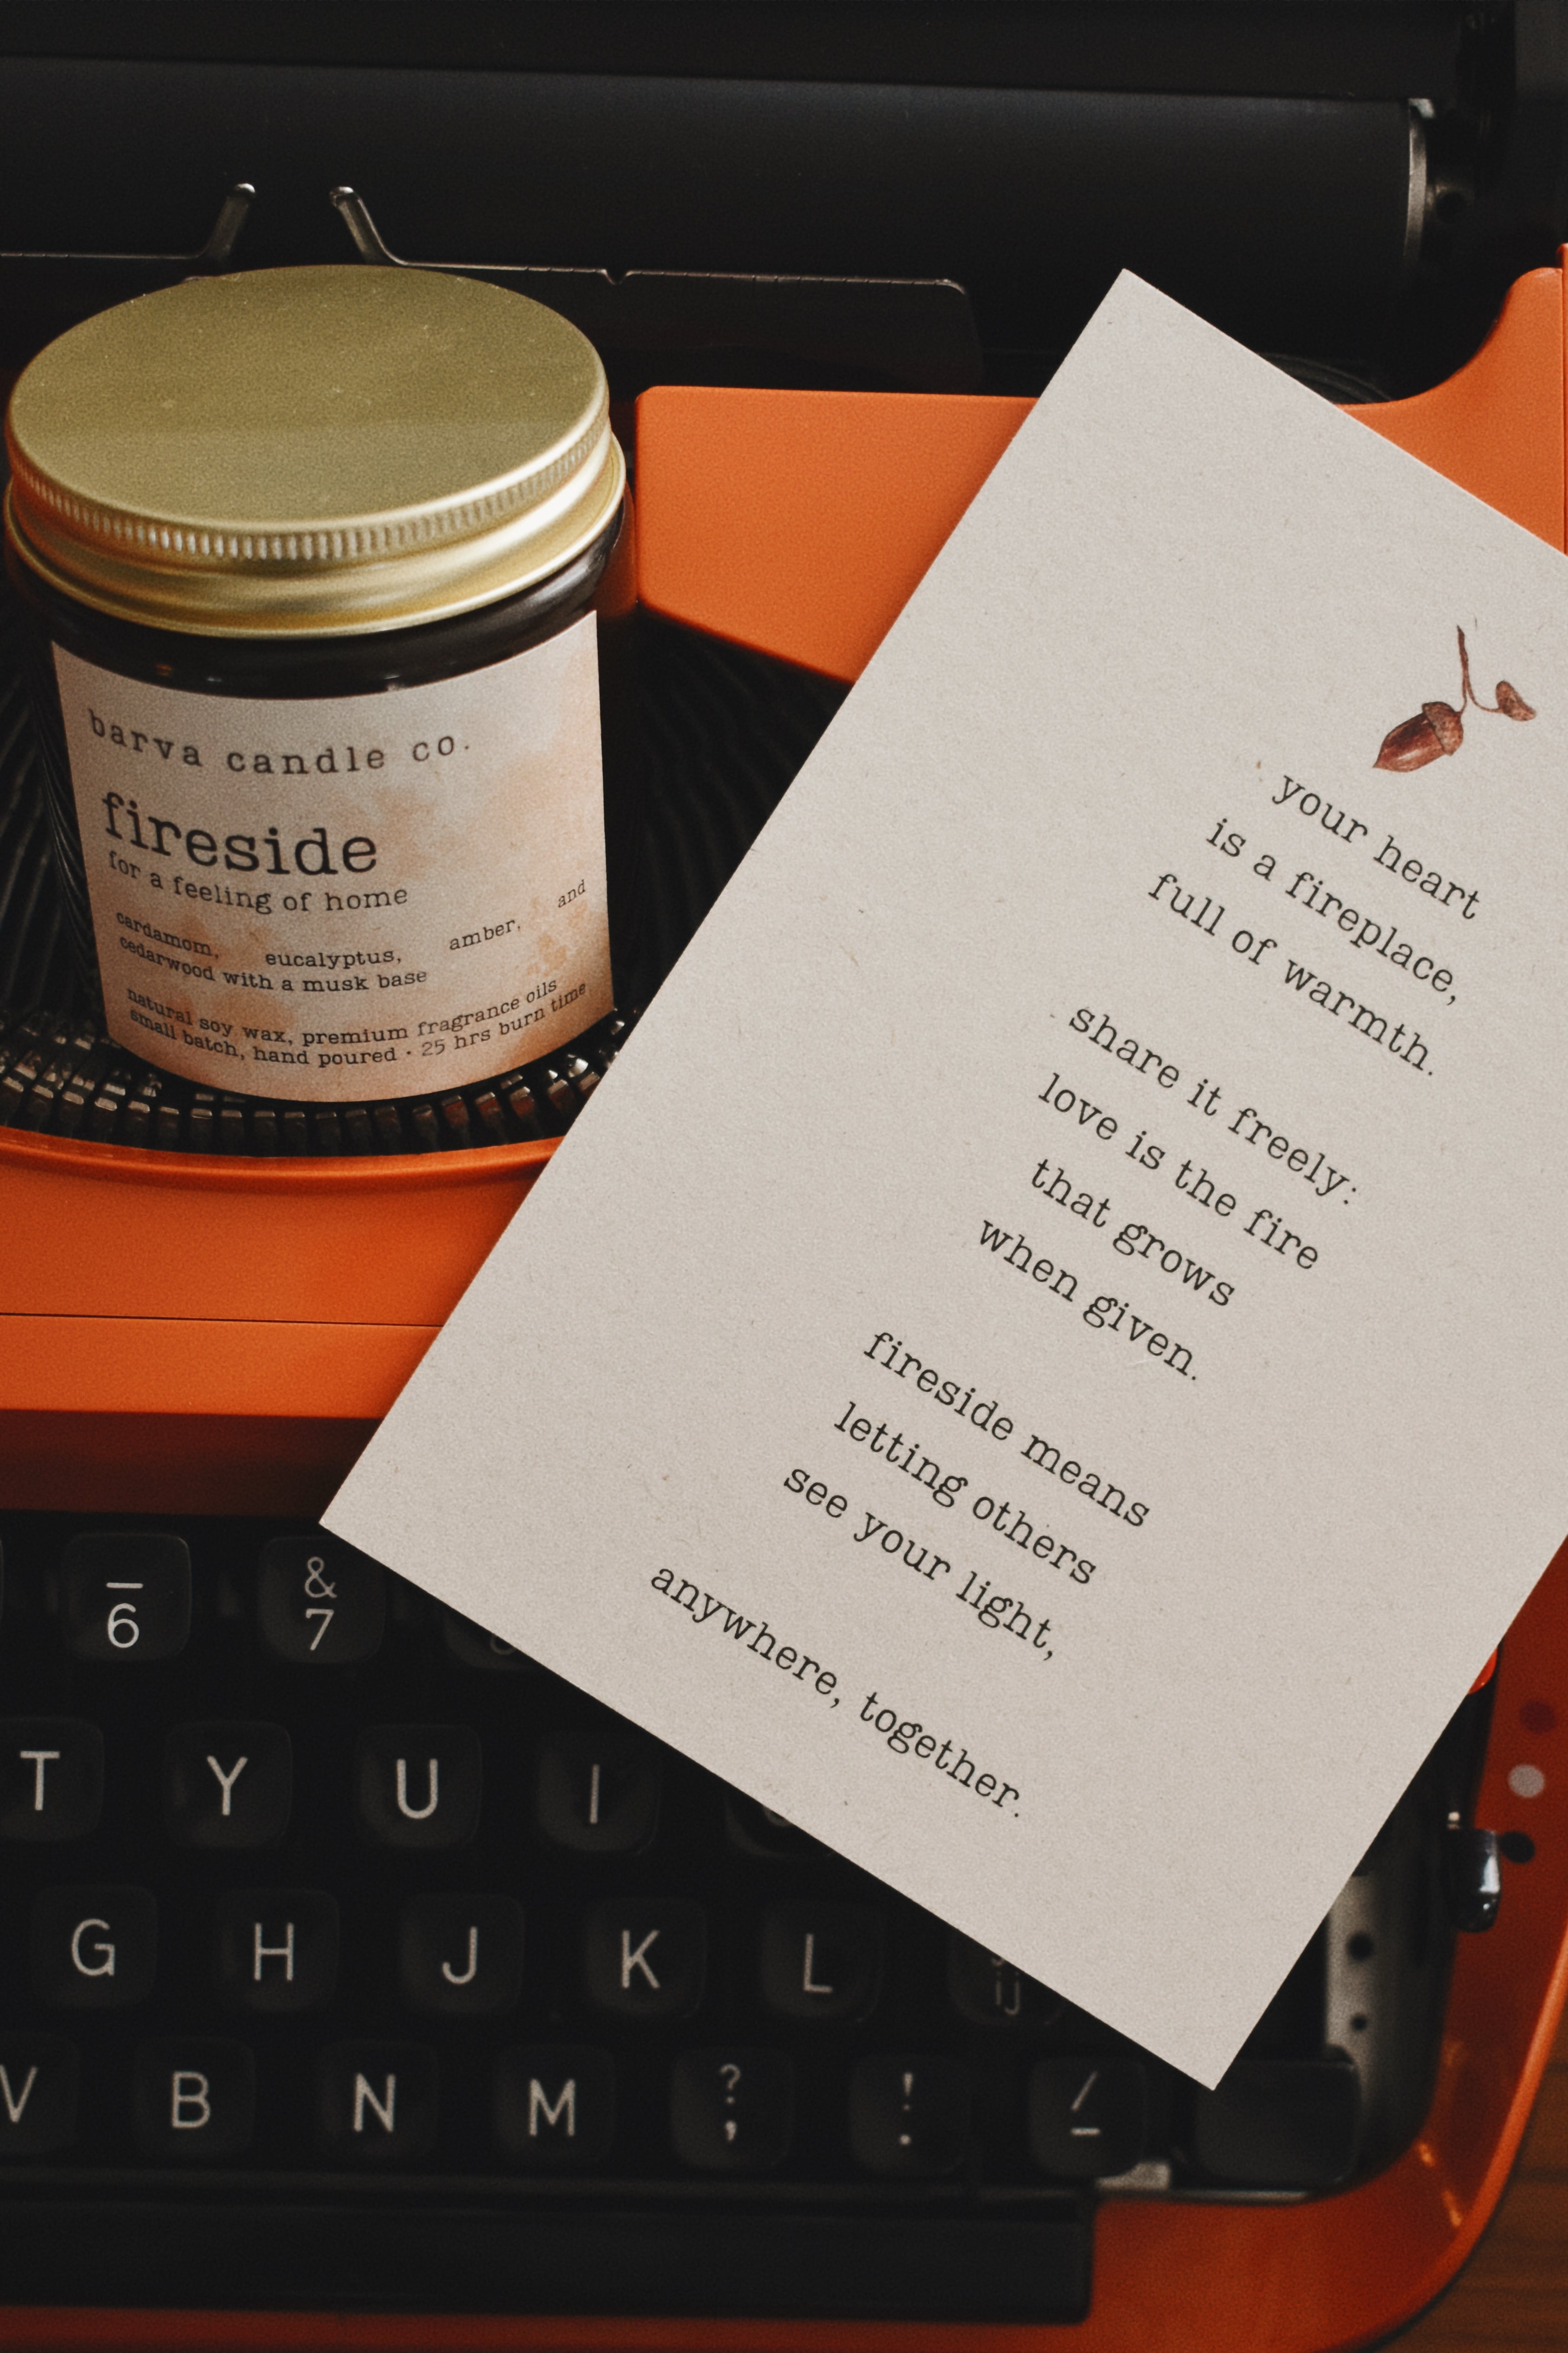 barva candle co.
fireside
for a feeling of home
cardamom, eucalyptus, amber, and
cedarwood with a musk base
natural soy wax, premium fragrance oils
small batch, hand poured · 25 hrs burn time
your heart
is a fireplace,
full of warmth.
share it freely:
love is the fire
that grows
when given.
fireside means
letting others
see your light,
anywhere, together.
_ &
6 7
T Y U I
G H J K L
V B N M ? , ! . / -